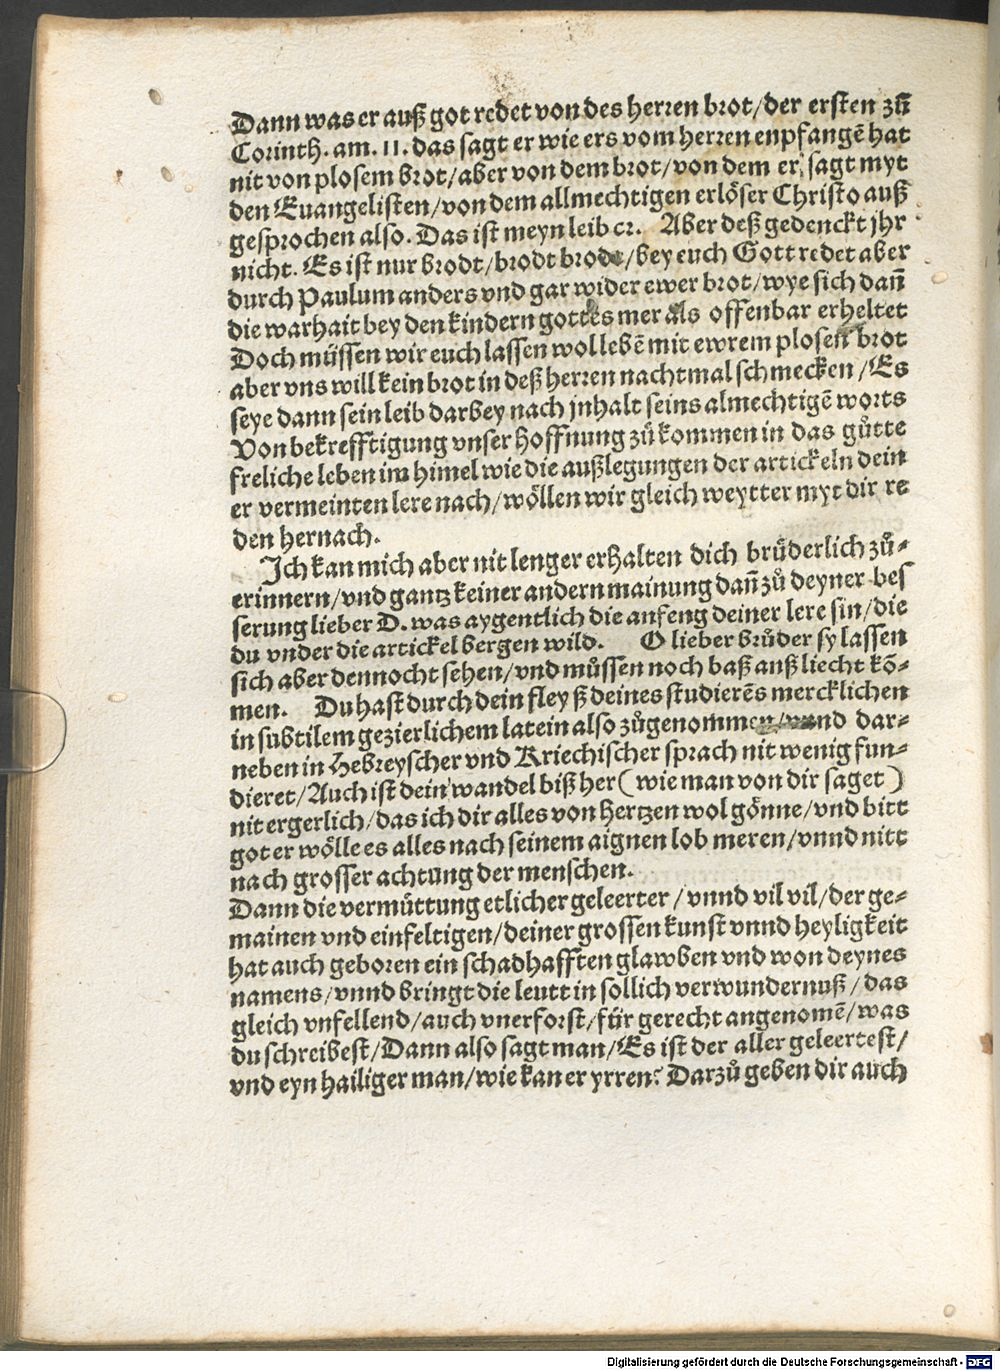 Dann was er auß got redet von des herren brot/der ersten zů̃
Corinth. am. 11. das sagt er wie ers vom herren enpfangẽ hat
nit von plosem brot/aber von dem brot/von dem er sagt myt
den Euangelisten/von dem allmechtigen erlöser Christo auß
gesprochen also. Das ist meyn leib ꝛc. Aber deß gedenckt jhr
nicht. Es ist nur brodt/brodt brodt/bey euch Gott redet aber
durch Paulum anders vnd gar wider ewer brot/wye sich dañ
die warhait bey den kindern gottes mer als offenbar erheltet
Doch müssen wir euch lassen wol lebẽ mit ewrem plosen brot
aber vns will kein brot in deß herren nachtmal schmecken/Es
seye dann sein leib darbey nach jnhalt seins almechtigẽ worts
Von bekrefftigung vnser hoffnung zů kommen in das gůtte
freliche leben im himel wie die außlegungen der artickeln dein
er vermeinten lere nach/wöllen wir gleich weytter myt dir re
den hernach.
Jch kan mich aber nit lenger erhalten dich brüderlich zů-
erinnern/vnd gantz keiner andern mainung dañ zů deyner bes
serung lieber D. was aygentlich die anfeng deiner lere sin/die
du vnder die artickel bergen wild. O lieber brůder sy lassen
sich aber dennocht sehen/vnd můssen noch baß anß liecht kõ-
men. Du hast durch dein fleyß deines studierẽs mercklichen
in subtilem gezierlichem latein also zůgenommen/vnnd dar-
neben in Hebreyscher vnd Kriechischer sprach nit wenig fun-
dieret/Auch ist dein wandel biß her (wie man von dir saget)
nit ergerlich/das ich dir alles von hertzen wol gönne/vnd bitt
got er wölle es alles nach seinem aignen lob meren/vnnd nitt
nach grosser achtung der menschen.
Dann die vermüttung etlicher geleerter/vnnd vil vil/der ge-
mainen vnd einfeltigen/deiner grossen kunst vnnd heyligkeit
hat auch geboren ein schadhafften glawben vnd won deynes
namens/vnnd bringt die leutt in sollich verwundernuß/das
gleich vnfellend/auch vnerforst/für gerecht angenomẽ/was
du schreibest/Dann also sagt man/Es ist der aller geleertest/
vnd eyn hailiger man/wie kan er yrren? Darzů geben dir auch
Digitalisierung gefördert durch die Deutsche Forschungsgemeinschaft - DFG